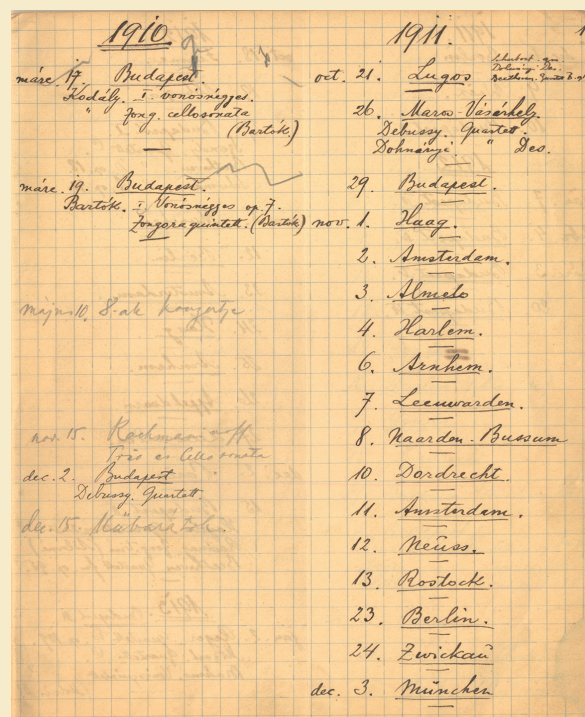 1910
márc. 17. Budapest.
Kodály. I. vonósnégyes.
" zong. cellosonata
(Bartók.)
márc. 19. Budapest.
Bartók. I Vonósnégyes op. 7.
Zongoraquintett. (Bartók)
május 10. 8-ak
nov. 15. Rachmaninoff
Trio és Cello sonata
dec. 2. Budapest
Debussy. Quartett.
dec. 15. Műbarátok
1911.
oct. 21. Lugos.
Dohnányi Des.
Beethoven
26. Maros-Vásárhely.
Debussy. Quartett.
Dohnányi " Des.
29. Budapest.
nov. 1. Haag.
2. Amsterdam.
3. Almelo
4. Harlem.
6. Arnhem.
7. Leeuwarden.
8. Naarden-Bussum
10. Dordrecht.
11. Amsterdam.
12. Neuss.
13. Rostock.
23. Berlin.
24. Zwickau
dec. 3. München